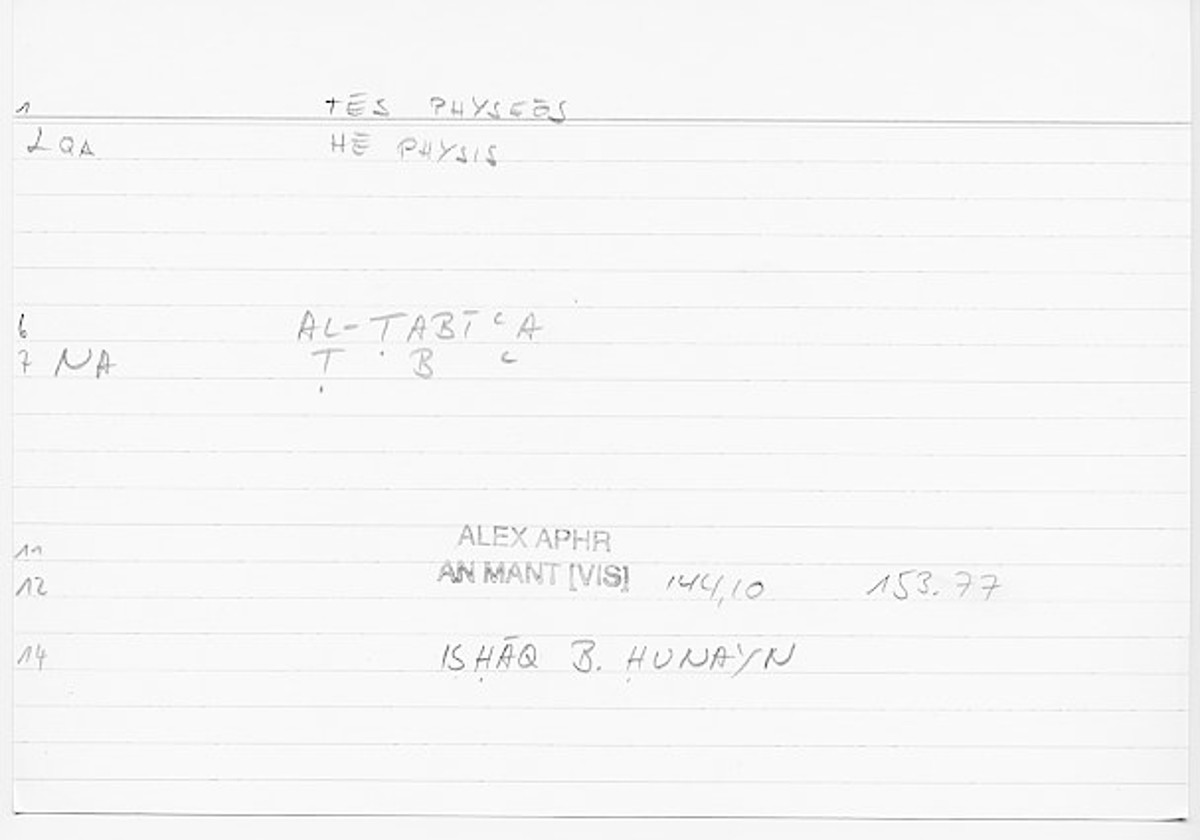 1 TĒS PHYSEŌS
2 QA HĒ PHYSIS
6 AL-ṬABĪʿA
7 NA Ṭ B ʿ
11 ALEX APHR
12 AN MANT [VIS] 144,10 153.77
14 ISḤĀQ B. ḤUNAYN